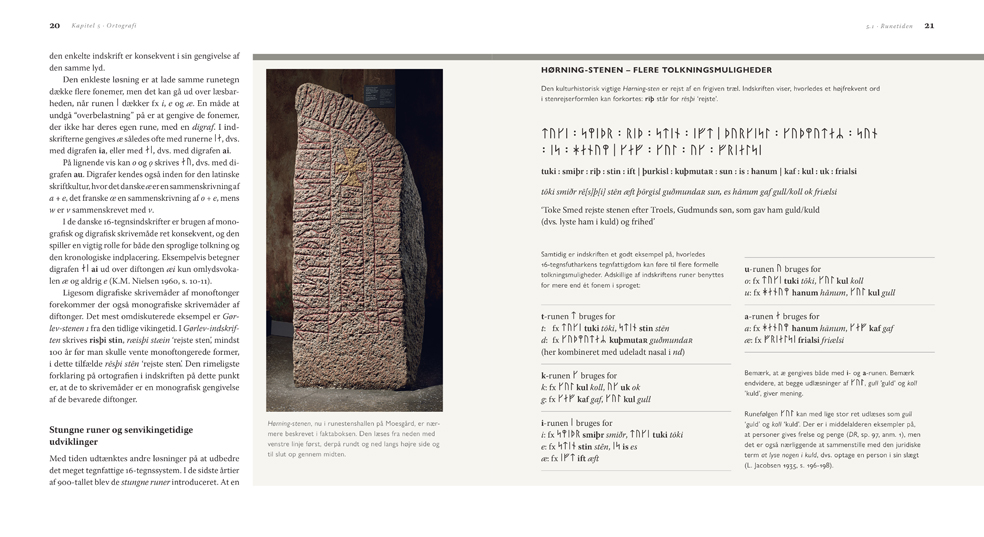 20 Kapitel 5 · Ortografi
den enkelte indskrift er konsekvent i sin gengivelse af
den samme lyd.
Den enkleste løsning er at lade samme runetegn
dække flere fonemer, men det kan gå ud over læsbar-
heden, når runen ᛁ dækker fx i, e og æ. En måde at
undgå “overbelastning” på er at gengive de fonemer,
der ikke har deres egen rune, med en digraf. I ind-
skrifterne gengives æ således ofte med runerne ᛁᛅ, dvs.
med digrafen ia, eller med ᛅᛁ, dvs. med digrafen ai.
På lignende vis kan o og ǫ skrives ᛅᚢ, dvs. med di-
grafen au. Digrafer kendes også inden for den latinske
skriftkultur, hvor det danske æ er en sammenskrivning af
a + e, det franske œ en sammenskrivning af o + e, mens
w er v sammenskrevet med v.
I de danske 16-tegnsindskrifter er brugen af mono-
grafisk og digrafisk skrivemåde ret konsekvent, og den
spiller en vigtig rolle for både den sproglige tolkning og
den kronologiske indplacering. Eksempelvis betegner
digrafen ᛅᛁ ai ud over diftongen æi kun omlydsvoka-
len æ og aldrig e (K.M. Nielsen 1960, s. 10-11).
Ligesom digrafiske skrivemåder af monoftonger
forekommer der også monografiske skrivemåder af
diftonger. Det mest omdiskuterede eksempel er Gør-
lev-stenen 1 fra den tidlige vikingetid. I Gørlev-indskrif-
ten skrives risþi stin, ræisþi stæin ‘rejste sten’, mindst
100 år før man skulle vente monoftongerede former,
i dette tilfælde rēsþi stēn ‘rejste sten’. Den rimeligste
forklaring på ortografien i indskriften på dette punkt
er, at de to skrivemåder er en monografisk gengivelse
af de bevarede diftonger.
Stungne runer og senvikingetidige
udviklinger
Med tiden udtænktes andre løsninger på at udbedre
det meget tegnfattige 16-tegnssystem. I de sidste årtier
af 900-tallet blev de stungne runer introduceret. At en
Hørning-stenen, nu i runestenshallen på Moesgård, er nær-
mere beskrevet i faktaboksen. Den læses fra neden med
venstre linje først, derpå rundt og ned langs højre side og
til slut op gennem midten.
5.1 · Runetiden 21
HØRNING-STENEN – FLERE TOLKNINGSMULIGHEDER
Den kulturhistorisk vigtige Hørning-sten er rejst af en frigiven træl. Indskriften viser, hvorledes et højfrekvent ord
i stenrejserformlen kan forkortes: riþ står for rēsþi ‘rejste’.
ᛏᚢᚴᛁ : ᛋᛘᛁᚦᚱ : ᚱᛁᚦ : ᛋᛏᛁᚾ : ᛁᚠᛏ | ᚦᚢᚱᚴᛁᛋᛚ : ᚴᚢᚦᛘᚢᛏᛅᛦ : ᛋᚢᚾ
: ᛁᛋ : ᚼᛅᚾᚢᛘ | ᚴᛅᚠ : ᚴᚢᛚ : ᚢᚴ : ᚠᚱᛁᛅᛚᛋᛁ
tuki : smiþr : riþ : stin : ift | þurkisl : kuþmutaʀ : sun : is : hanum | kaf : kul : uk : frialsi
tōki smiðr rē[s]þ[i] stēn æft þōrgisl guðmundaʀ sun, es hānum gaf gull/koll ok friælsi
‘Toke Smed rejste stenen efter Troels, Gudmunds søn, som gav ham guld/kuld
(dvs. lyste ham i kuld) og frihed’
Samtidig er indskriften et godt eksempel på, hvorledes
16-tegnsfutharkens tegnfattigdom kan føre til flere formelle
tolkningsmuligheder. Adskillige af indskriftens runer benyttes
for mere end ét fonem i sproget:
t-runen ᛏ bruges for
t: fx ᛏᚢᚴᛁ tuki tōki, ᛋᛏᛁᚾ stin stēn
d: fx ᚴᚢᚦᛘᚢᛏᛅᛦ kuþmutaʀ guðmundaʀ
(her kombineret med udeladt nasal i nd)
k-runen ᚴ bruges for
k: fx ᚴᚢᛚ kul koll, ᚢᚴ uk ok
g: fx ᚴᛅᚠ kaf gaf, ᚴᚢᛚ kul gull
i-runen ᛁ bruges for
i: fx ᛋᛘᛁᚦᚱ smiþr smiðr, ᛏᚢᚴᛁ tuki tōki
e: fx ᛋᛏᛁᚾ stin stēn, ᛁᛋ is es
æ: fx ᛁᚠᛏ ift æft
u-runen ᚢ bruges for
o: fx ᛏᚢᚴᛁ tuki tōki, ᚴᚢᛚ kul koll
u: fx ᚼᛅᚾᚢᛘ hanum hānum, ᚴᚢᛚ kul gull
a-runen ᛅ bruges for
a: fx ᚼᛅᚾᚢᛘ hanum hānum, ᚴᛅᚠ kaf gaf
æ: fx ᚠᚱᛁᛅᛚᛋᛁ frialsi friælsi
Bemærk, at æ gengives både med i- og a-runen. Bemærk
endvidere, at begge udlæsninger af ᚴᚢᛚ, gull ‘guld’ og koll
‘kuld’, giver mening.
Runefølgen ᚴᚢᛚ kan med lige stor ret udlæses som gull
‘guld’ og koll ‘kuld’. Der er i middelalderen eksempler på,
at personer gives frelse og penge (DR, sp. 97, anm. 1), men
det er også nærliggende at sammenstille med den juridiske
term at lyse nogen i kuld, dvs. optage en person i sin slægt
(L. Jacobsen 1935, s. 196-198).